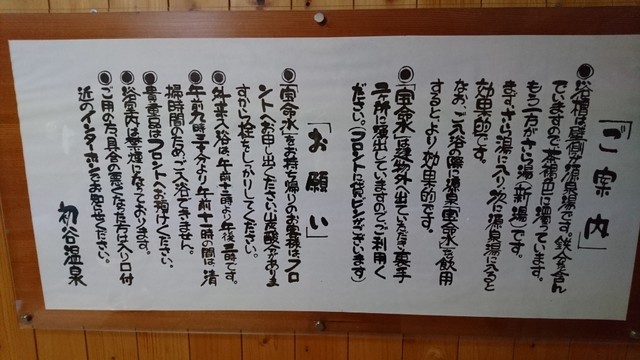 「ご案内」
●浴槽は壁側が源泉場です。鉄分を含ん
でいますので茶褐色に濁っています。
もう一方がさら湯(新湯)です。
まず、さら湯に入り次に源泉場に入ると
効果的です。
なお、ご入浴の際に源泉「宝命水」を飲用
するとより効果的です。
●「宝命水」は建物外へ出ていただき裏手
二ヶ所に湧出していますのでご利用く
ださい。(フロントに空ビンがございます)
「お願い」
●「宝命水」をお持ち帰りのお客様はフロ
ントへお申し出ください。炭酸がありま
すから栓をしかりしてください。
●外来入浴は、午前十一時より午後三時です。
●午前九時三十分より午前十一時の間は清
掃時間のためご入浴できません。
●貴重品はフロントへお預けください。
●浴室内は禁煙になっております。
●ご用の方、具合の悪くなった方は入り口付
近のインターホンでお知らせください。
初谷温泉